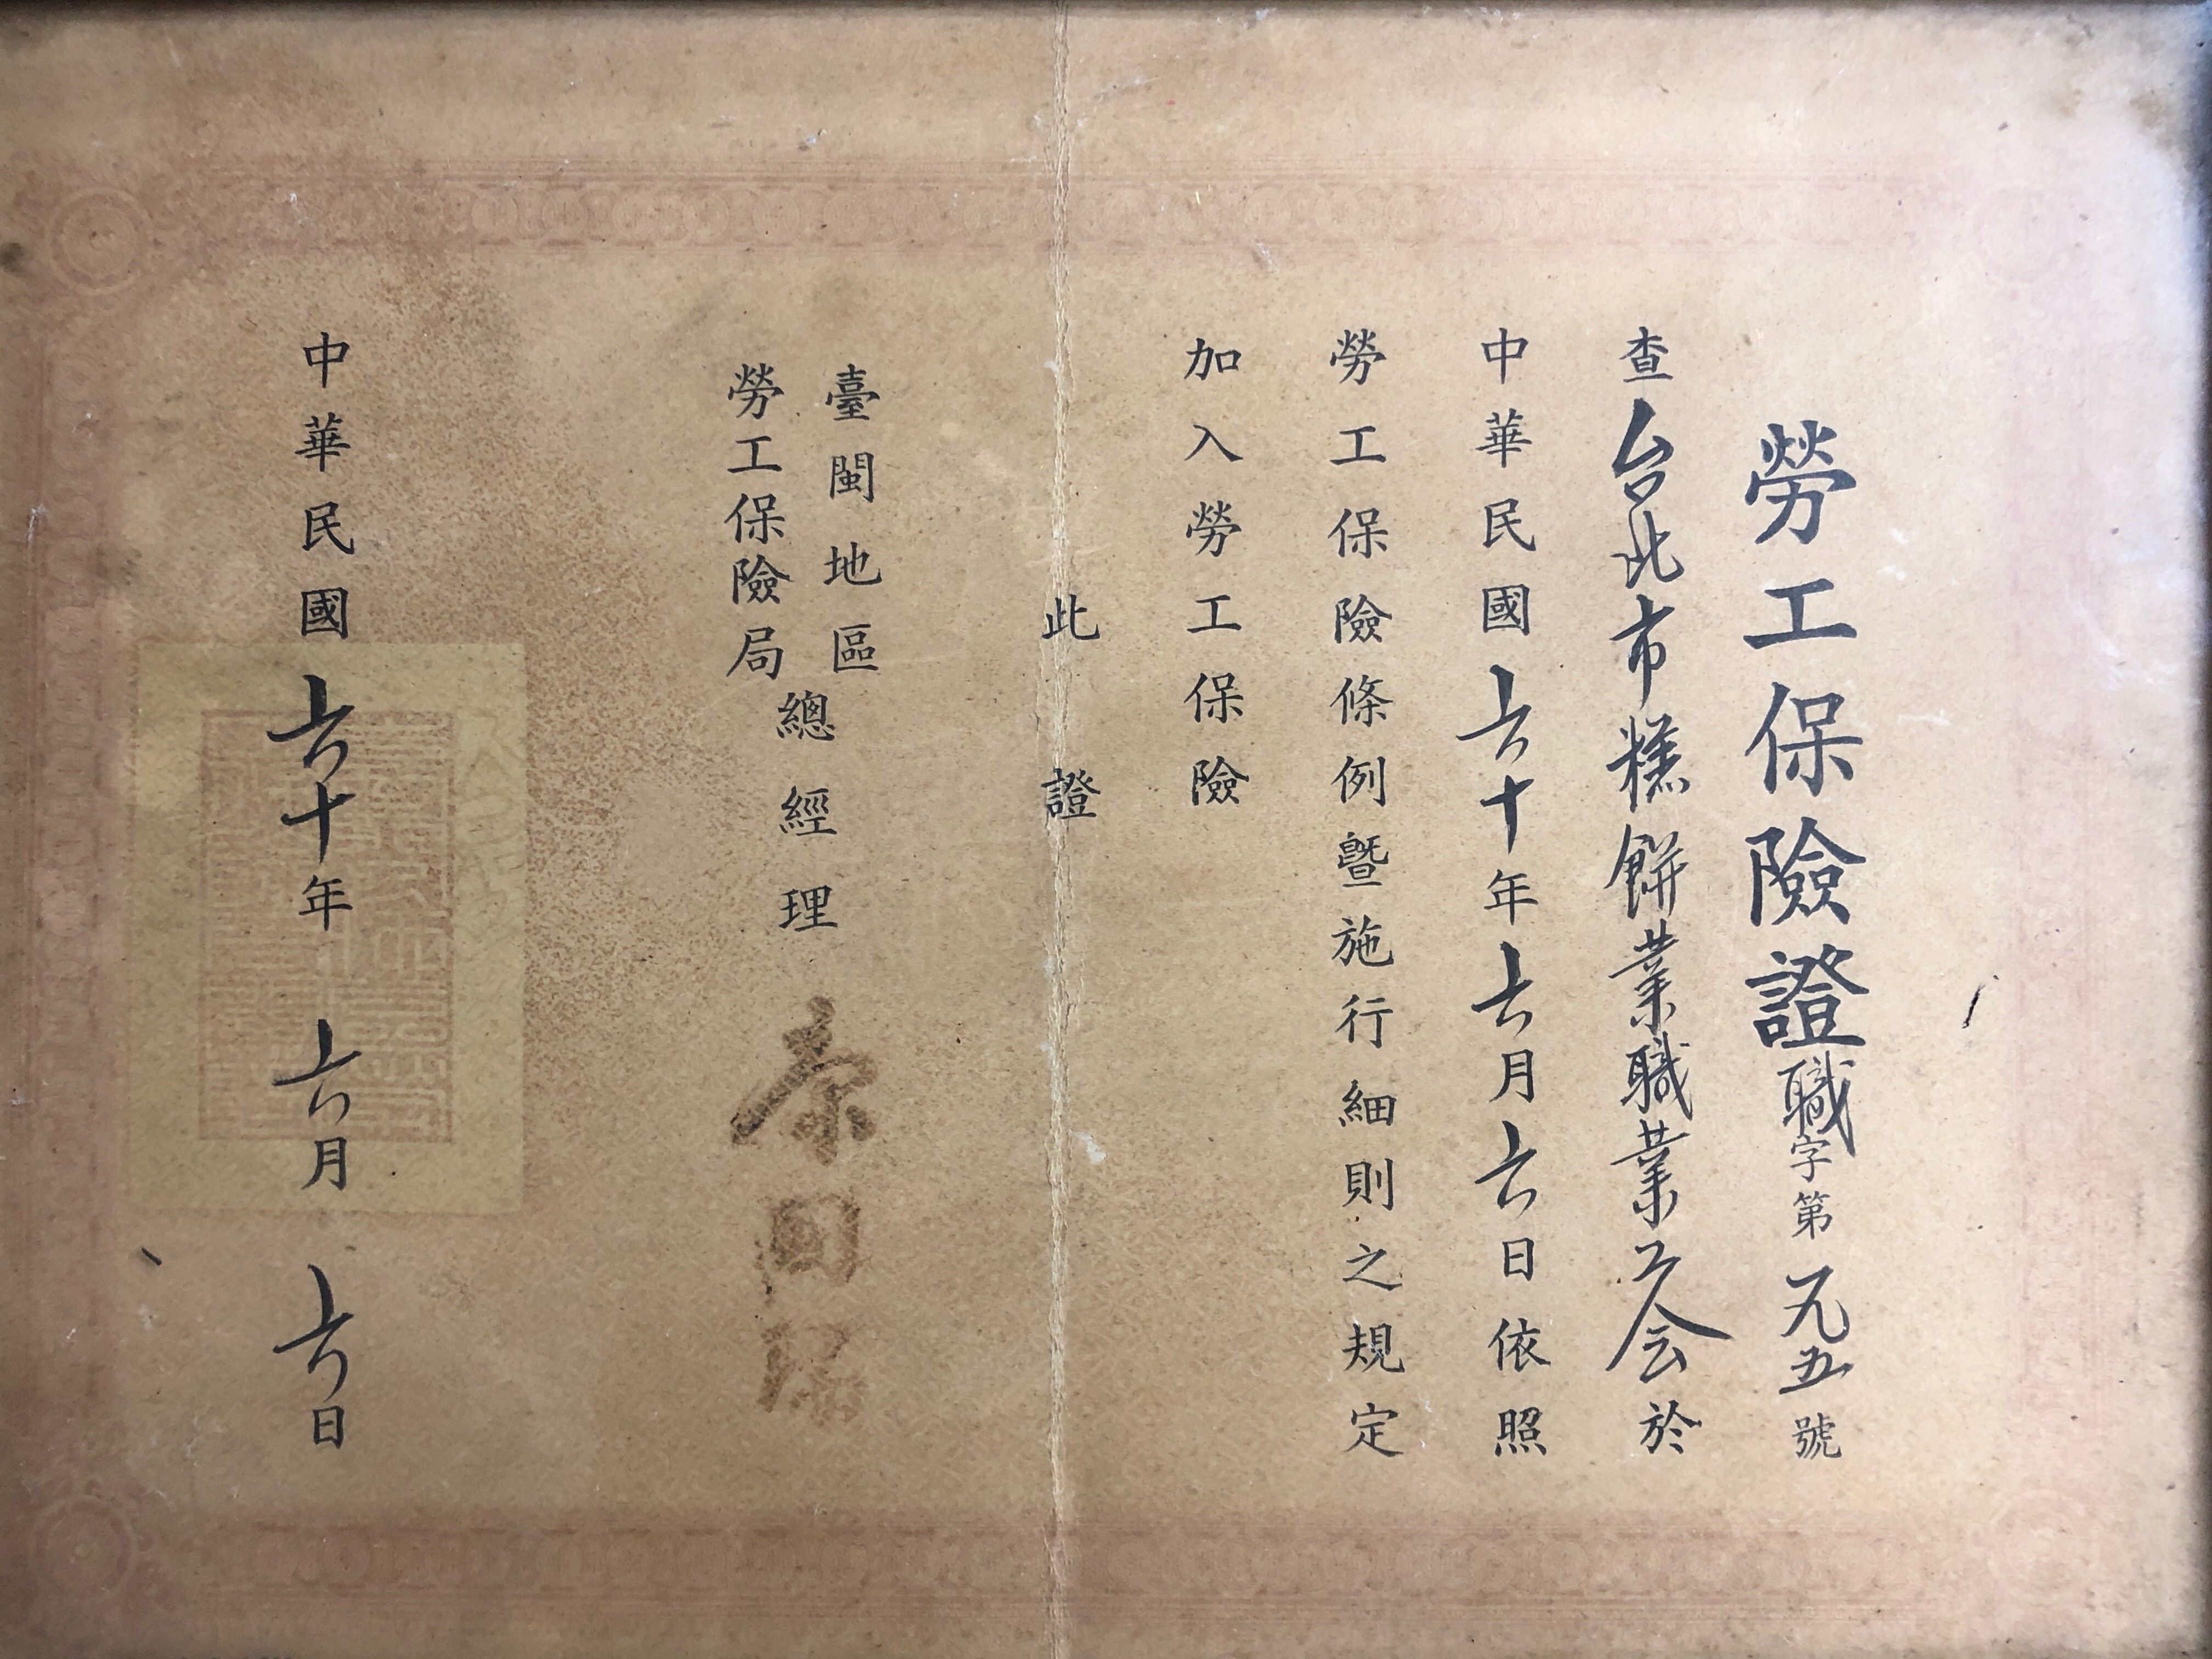 勞工保險證職字第九五號
查台北市糕餅業職業工会於
中華民國六十年六月六日依照
勞工保險條例暨施行細則之規定
加入勞工保險
此證
臺閩地區
勞工保險局
總經理
中華民國六十年六月六日